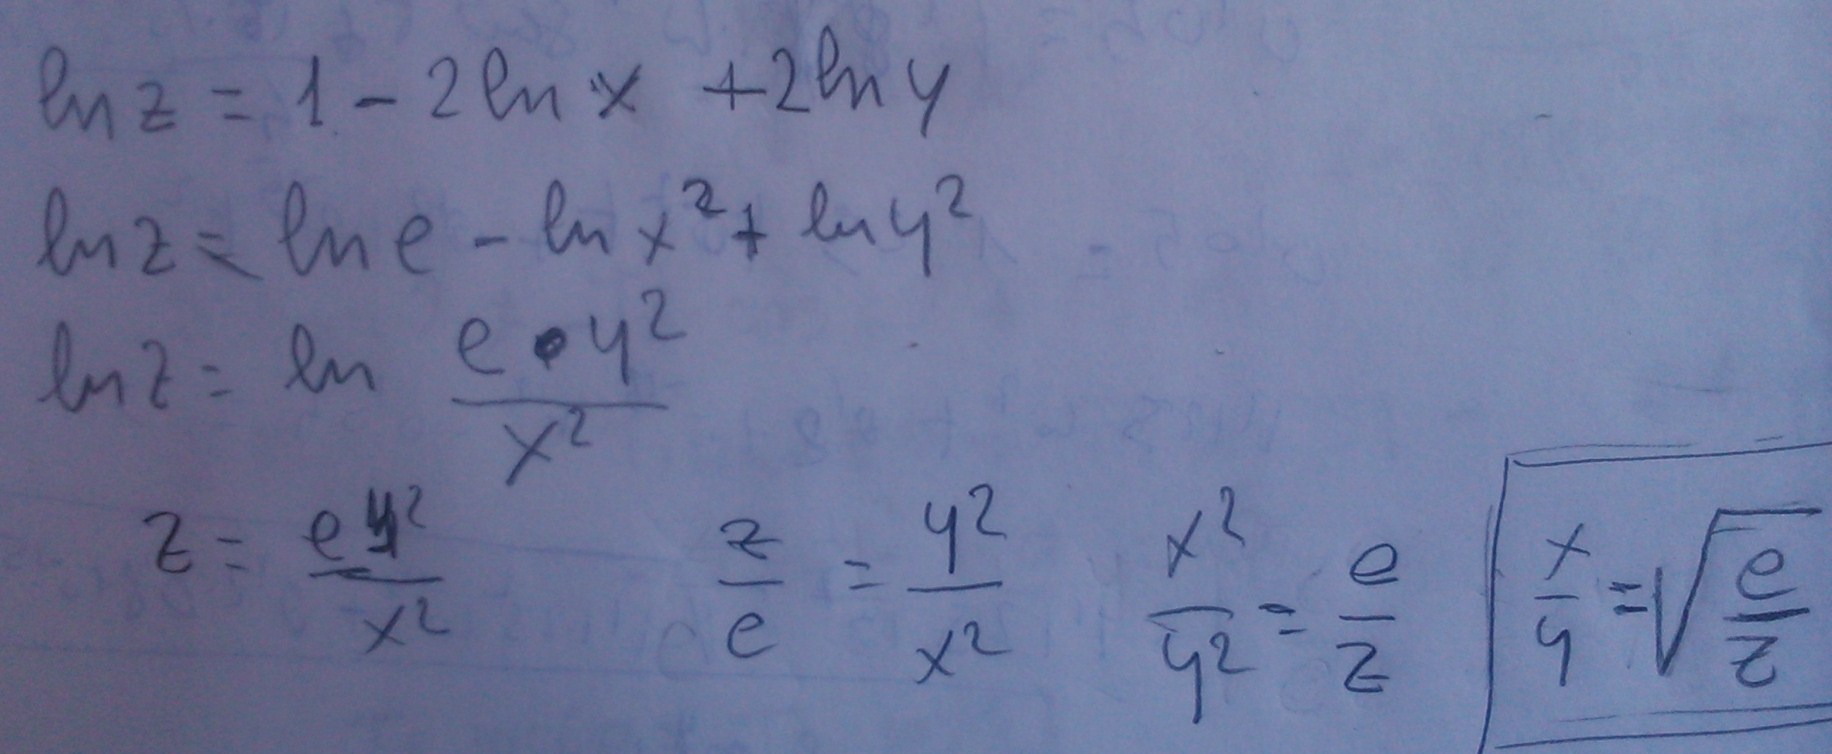 ln z = 1 - 2 ln x + 2 ln y
ln z = ln e - ln x² + ln y²
ln z = ln (e • y²)/(x²)
z = (e y²)/(x²)   z/e = y²/x²   x²/y² = e/z   x/y = √(e/z)